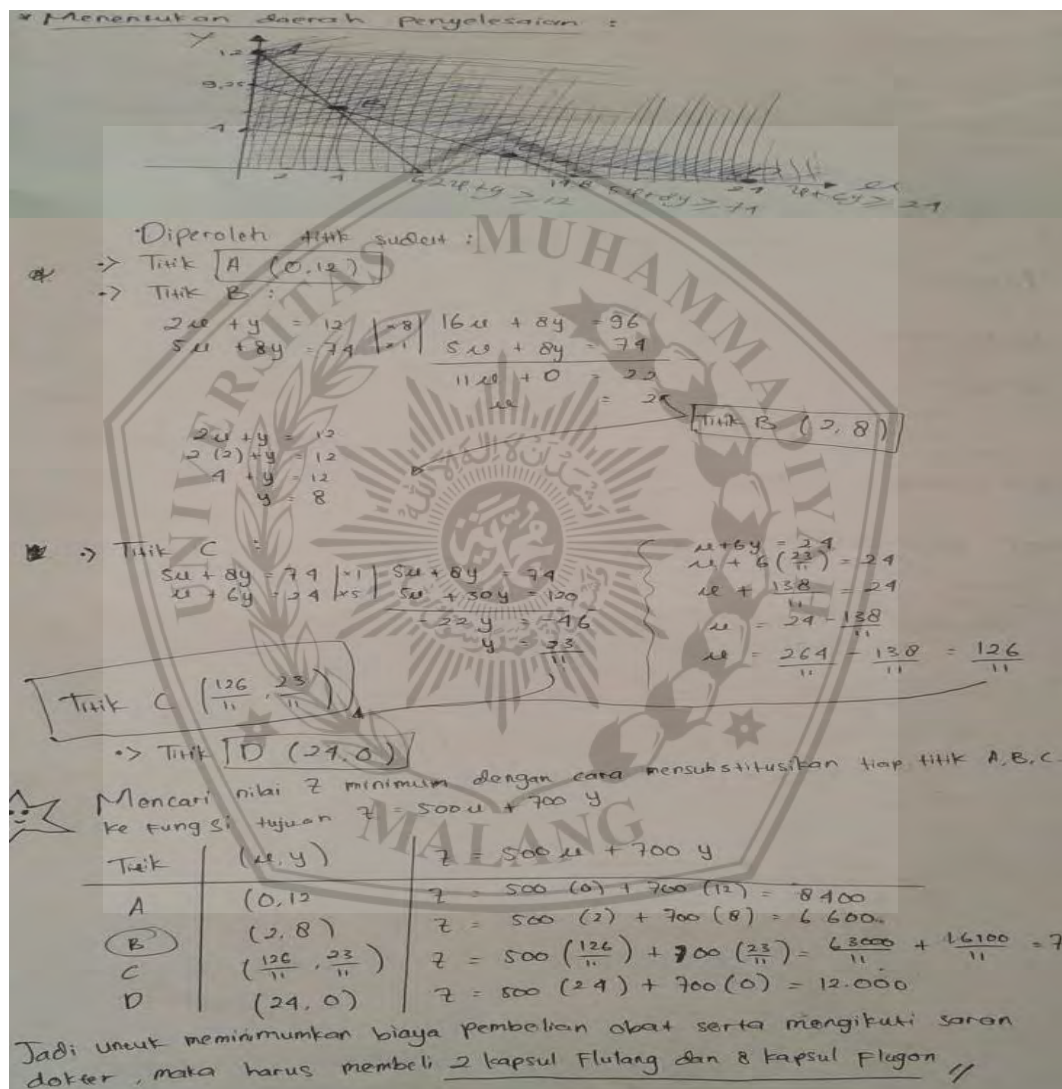 * Menentukan daerah penyelesaian :
y
12
A
9,25
B
4
2 4 6 14,8 24
2x+y ≥ 12 5x+8y ≥ 74 x+6y ≥ 24
Diperoleh titik sudut :
-> Titik A (0,12)
-> Titik B :
2x + y = 12 | ×8 | 16x + 8y = 96
5x + 8y = 74 | ×1 | 5x + 8y = 74
11x + 0 = 22
x = 2
Titik B (2, 8)
2x + y = 12
2 (2) + y = 12
4 + y = 12
y = 8
-> Titik C :
5x + 8y = 74 | ×1 | 5x + 8y = 74
x + 6y = 24 | ×5 | 5x + 30y = 120
-22 y = -46
y = 23/11
x+6y = 24
x + 6 (23/11) = 24
x + 138/11 = 24
x = 24 - 138/11
x = 264/11 - 138/11 = 126/11
Titik C (126/11 , 23/11)
-> Titik D (24, 0)
Mencari nilai Z minimum dengan cara mensubstitusikan tiap titik A, B, C.
ke fungsi tujuan Z = 500x + 700 y
Titik | (x, y) | Z = 500 x + 700 y
A (0, 12 Z = 500 (0) + 700 (12) = 8400
B (2, 8) Z = 500 (2) + 700 (8) = 6 600
C (126/11 , 23/11) Z = 500 (126/11) + 700 (23/11) = 63000/11 + 16100/11 = 7
D (24, 0) Z = 500 (24) + 700 (0) = 12.000
Jadi untuk meminimumkan biaya pembelian obat serta mengikuti saran
dokter, maka harus membeli 2 kapsul Flulang dan 8 kapsul Flugon //
UNIVERSITAS MUHAMMADIYAH
MALANG